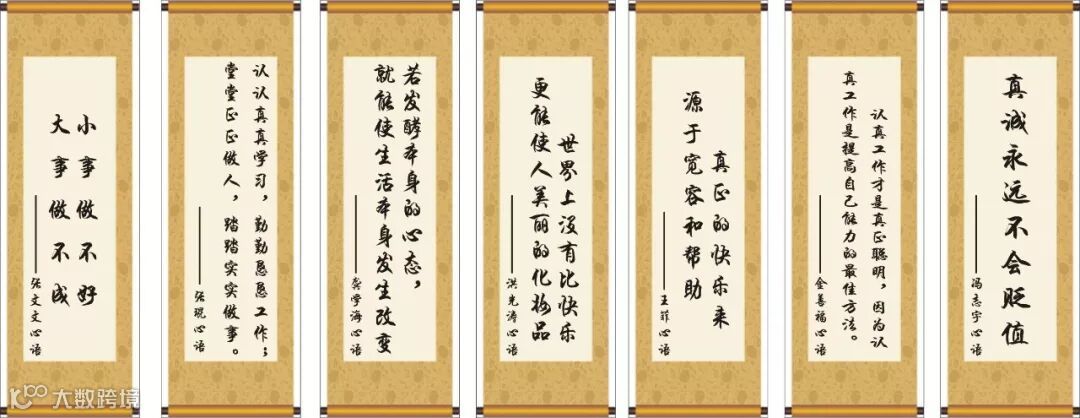 小事做不好
大事做不成
——张文文心语
认认真真学习，勤勤恳恳工作；
堂堂正正做人，踏踏实实做事。
——张琨心语
若发酵本身的心态，
就能使生活本身发生改变
——龚学海心语
世界上没有比快乐
更能使人美丽的化妆品
——洪光涛心语
真正的快乐来
源于宽容和帮助
——王菲心语
认真工作才是真正聪明，因为认
真工作是提高自己能力的最佳方法。
——金善福心语
真诚永远不会贬值
——冯志宇心语
大数跨境